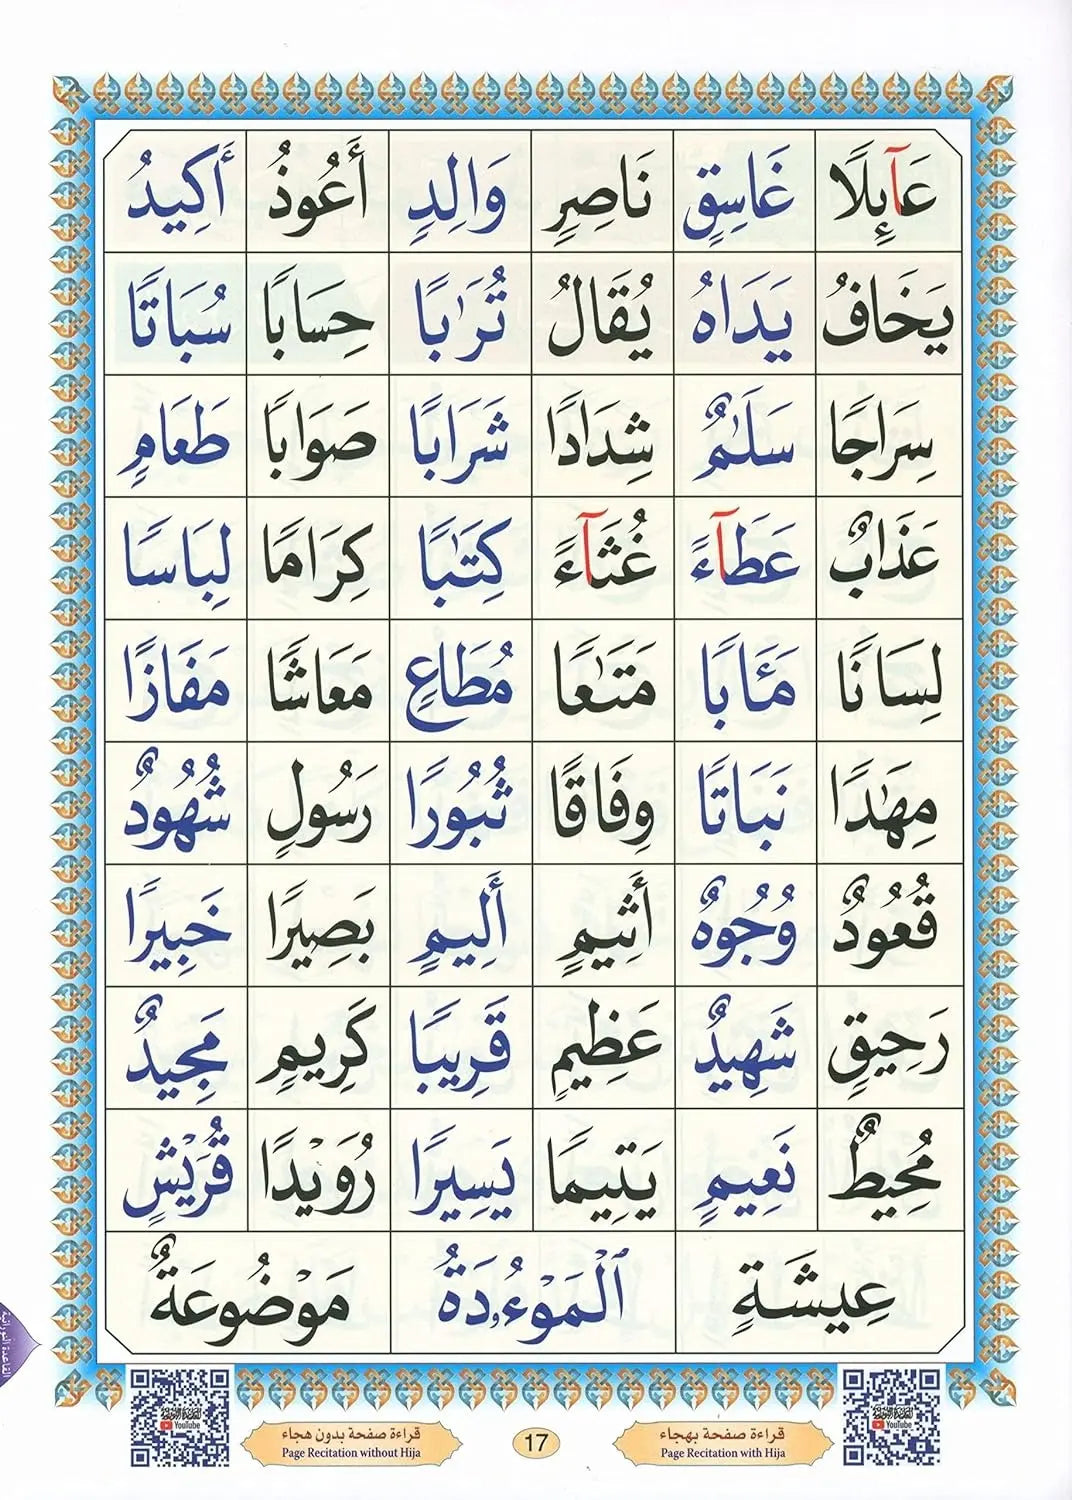 عَآئِلًا غَاسِقٍ نَاصِرٍ وَالِدٍ أَعُوذُ أَكِيدُ
يَخَافُ يَدَاهُ يُقَالُ تُرَٰبًا حِسَابًا سُبَاتًا
سِرَاجًا سَلَٰمٌ شِدَادًا شَرَابًا صَوَابًا طَعَامٍ
عَذَابٌ عَطَآءً غُثَآءً كِتَٰبًا كِرَامًا لِبَاسًا
لِسَانًا مَـَٔابًا مَتَٰعًا مُطَاعٍ مَعَاشًا مَفَازًا
مِهَٰدًا نَبَاتًا وِفَاقًا ثُبُورًا رَسُولٍ شُهُودٌ
قُعُودٌ وُجُوهٌ أَثِيمٍ أَلِيمٍ بَصِيرًا خَبِيرًا
رَحِيقٍ شَهِيدٌ عَظِيمٍ قَرِيبًا كَرِيمٍ مَجِيدٌ
مُحِيطٌ نَعِيمٍ يَتِيمًا يَسِيرًا رُوَيْدًا قُرَيْشٍ
عِيشَةٍ ٱلْمَوْءُۥدَةُ مَوْضُوعَةٌ
القاعدة النورانية
YouTube YouTube
قراءة صفحة بهجاء
Page Recitation with Hija
17
قراءة صفحة بدون هجاء
Page Recitation without Hija